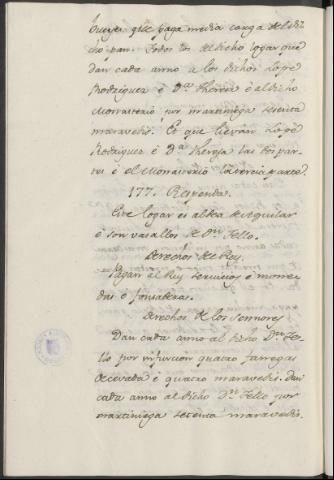 bueyes que paga media carga del di-
cho pan. Todos los deldicho logar que
dan cada anno a los dichos Lope
Rodriguez é D.ª Theresa é aldicho
Monasterio por martiniega setenta
maravedis. Et que lievan Lope
Rodriguez é D.ª Theresa las dos par-
tes é el Monasterio la tercia parte.
177. Respenda.
Este logar es aldea de Aguilar
é son vasallos de Dn. Tello.
Derechos del Rey.
Pagan al Rey servicios é mone-
das é fonsaderas.
Derechos de los Sennores
Dan cada anno al dicho Dn. Te-
llo por infurcion quatro fanegas
de cevada é quatro maravedis. Dan
cada anno al dicho Dn. Tello por
martiniega setenta maravedis.